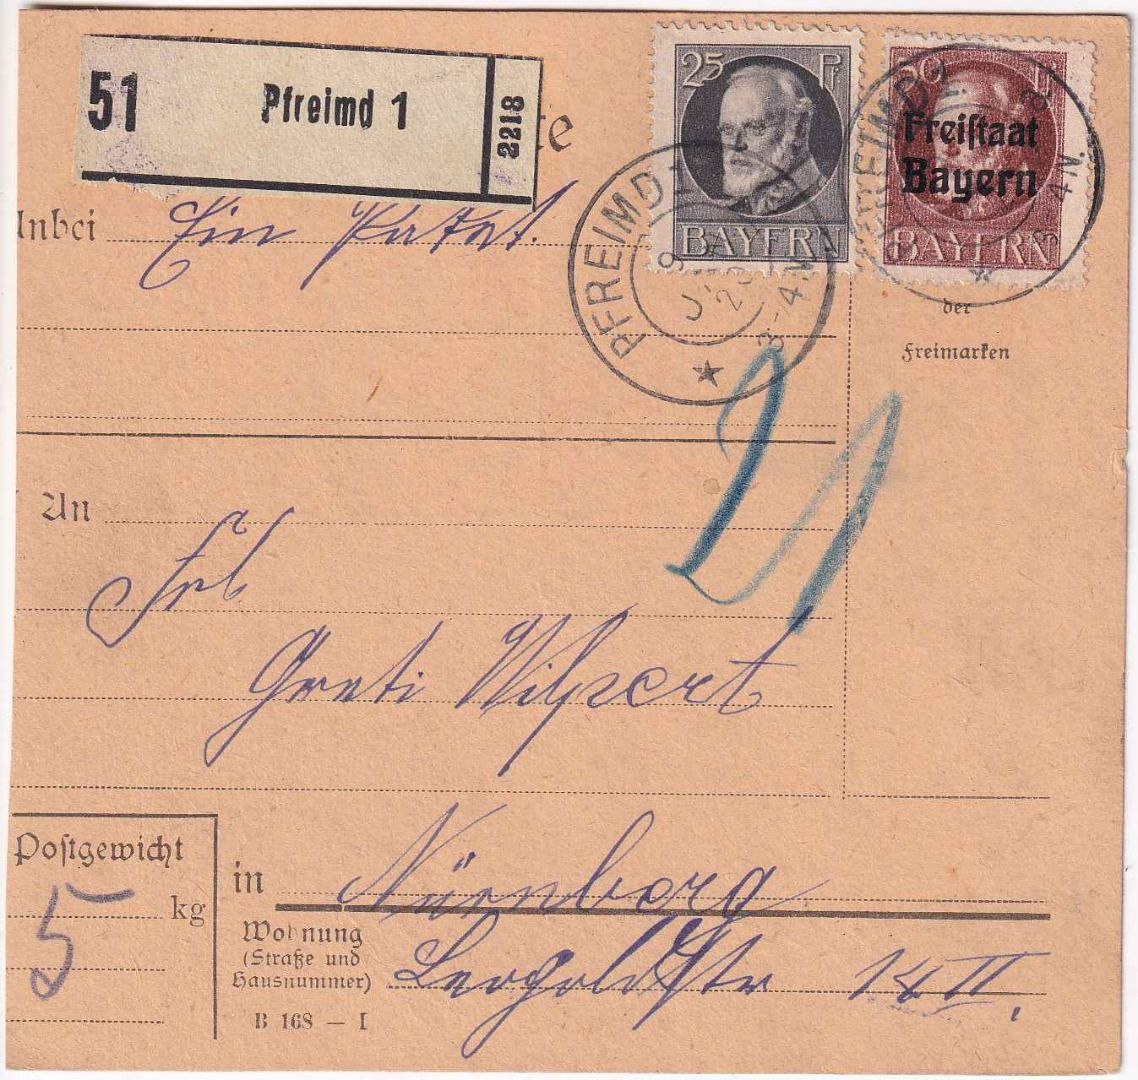 51 Pfreimd 1 2218
te
25 Pf
BAYERN
Freistaat
Bayern
BAYERN
PFREIMD
9
3-4 N.
PFREIMD
4 N.
Anbei Ein Paket.
der
Freimarken
21
An
Frl
Greti Wilpert
Postgewicht
5 kg
in Nürnberg
Wohnung
(Straße und
Hausnummer)
Leopoldstr 14 II.
B 168 — I